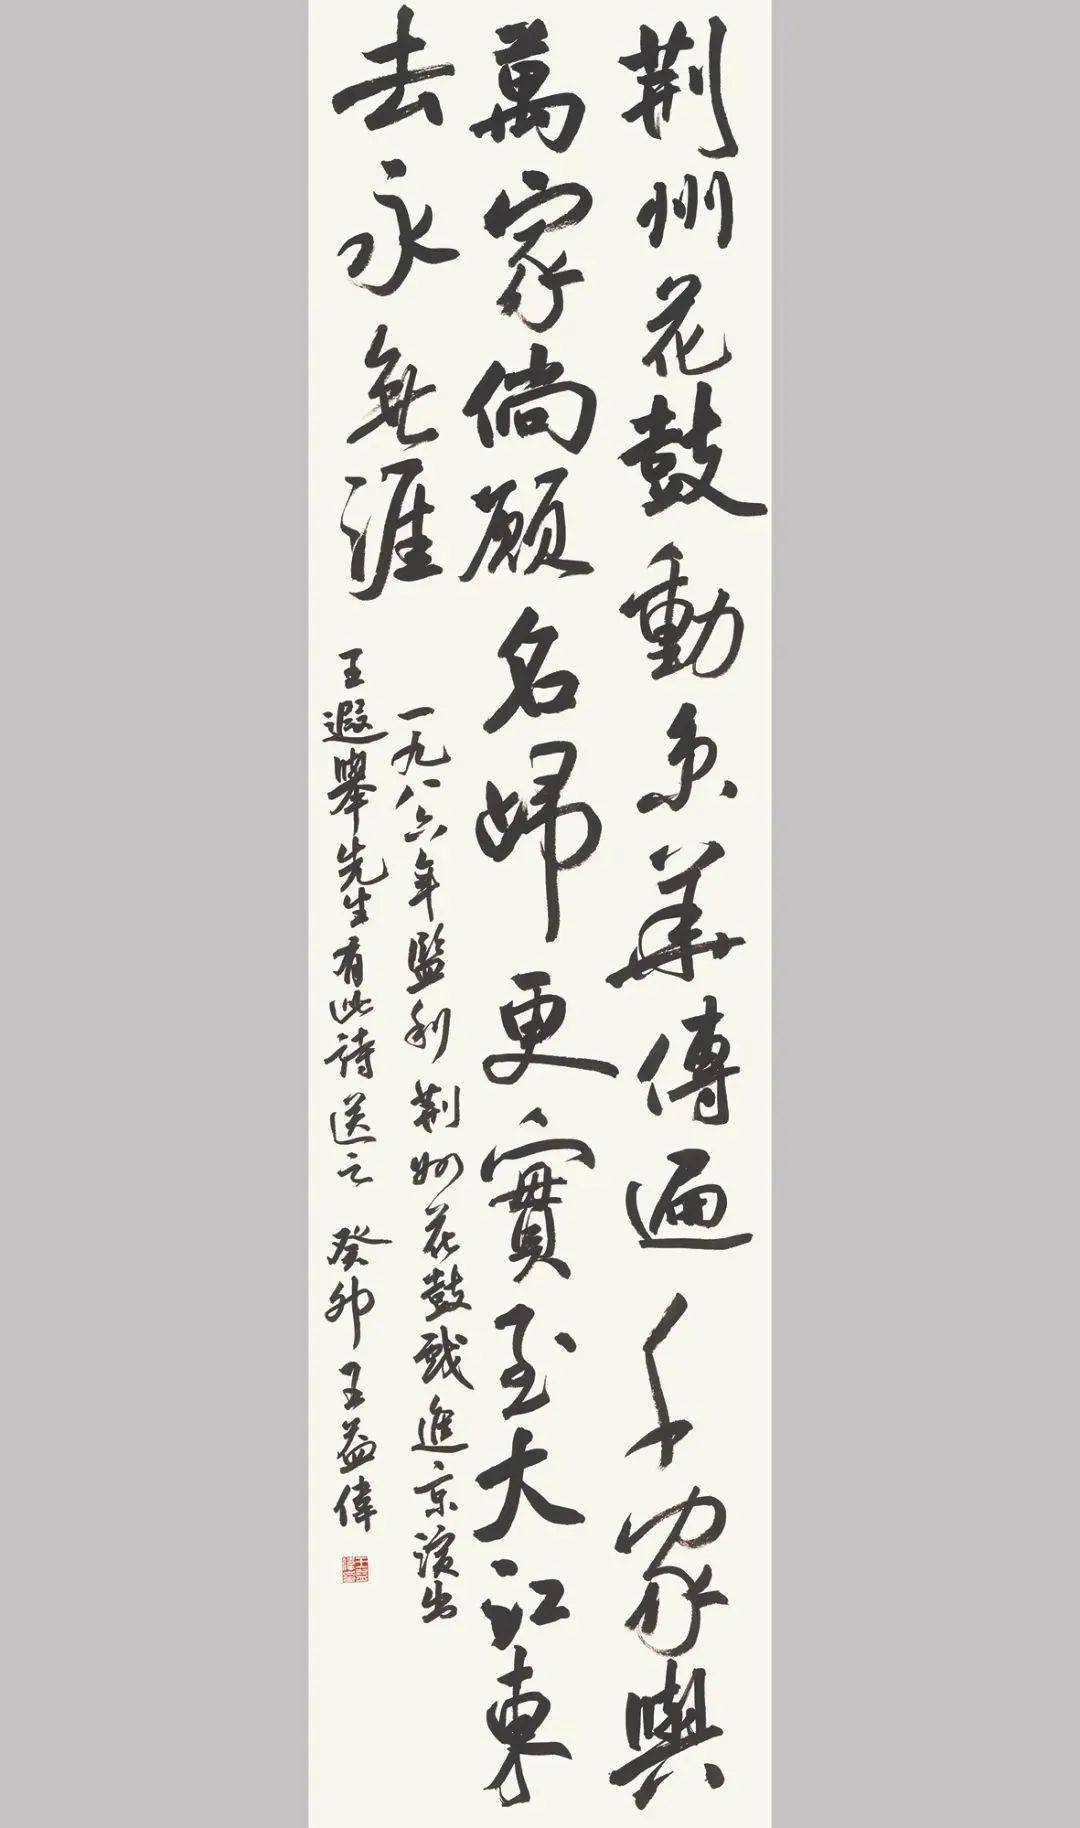 荆州花鼓動京華傳遍千家與
萬家倘顧名婦更實至大江東
去永無涯
一九八六年監利荆州花鼓戲進京演出
王遐舉先生有此詩送之 癸卯王益偉